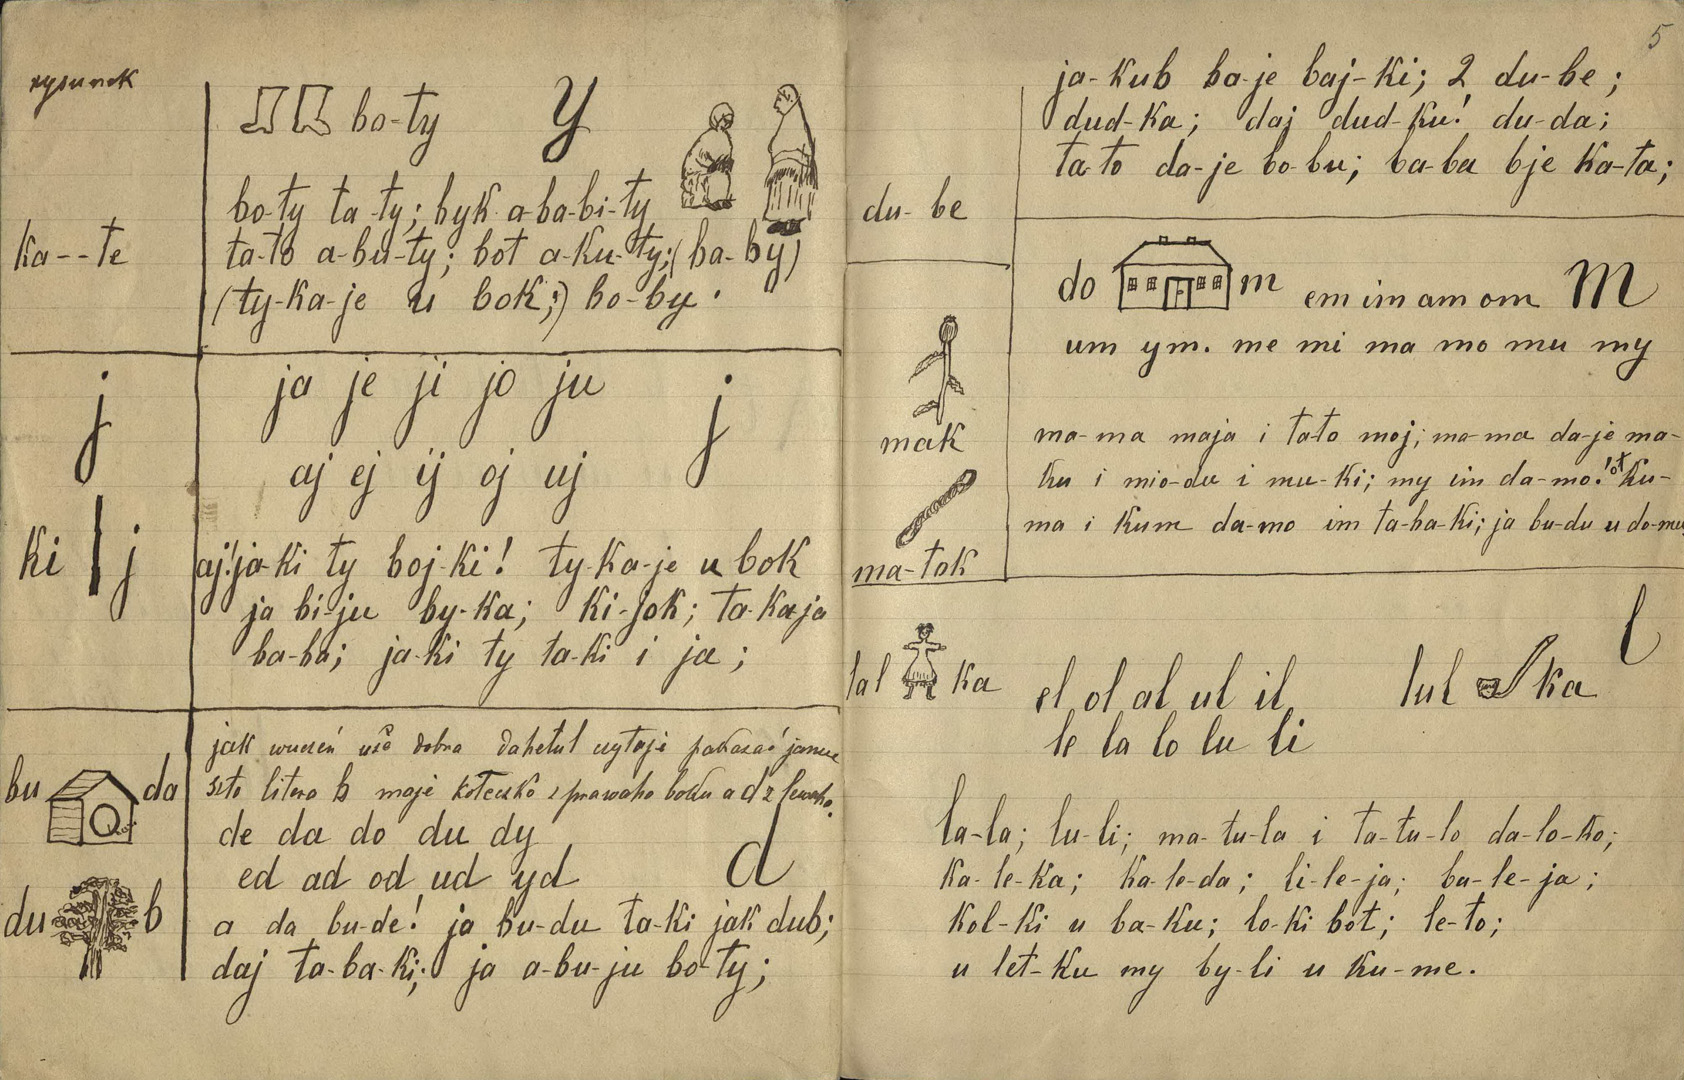 rysunek
bo-ty y
bo-ty ta-ty; byk a-ba-bi-ty
ka--te
ta-to a-bu-ty; bot a-ku-ty; (ba-by)
(ty-ka-je u bok;) bo-by.
j
ja je ji jo ju j
aj ej ij oj uj
ki j
aj! ja-ki ty boj-ki! ty-ka-je u bok
ja bi-ju by-ka; ki-jok; ta-kaja
ba-ba; ja-ki ty ta-ki i ja;
jak dobra
bu da
szto litera b maje z prawaho boku a d z lewaho.
de da do du dy
ed ad od ud yd d
du b
a da bu-de! ja bu-du ta-ki jak dub;
daj ta-ba-ki; ja a-bu-ju bo-ty;
5
ja-kub ba-je baj-ki; 2 du-be;
dud-ka; daj dud-ku! du-da;
ta-to da-je bo-bu; ba-ba bje ka-ta;
du-be
do m em im am om M
um ym. me mi ma mo mu my
mak
ma-ma maja i ta-to moj; ma-ma da-je ma-
ku i mio-du i mu-ki; my im da-mo! ot ku-
ma i kum da-mo im ta-ba-ki; ja bu-du u do-mu
ma-tok
l
lal ka
el ol al ul il lul ka
le la lo lu li
la-la; lu-li; ma-tu-la i ta-tu-lo da-lo-ko;
ka-le-ka; ka-le-da; li-le-ja; ba-le-ja;
kol-ki u ba-ku; lo-ki bot; le-to;
u let-ku my by-li u ku-me.